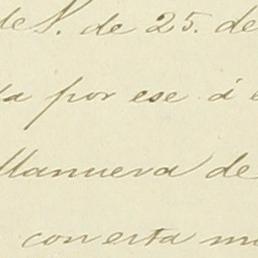 de V. de 25. de
por ese á
llanueva de
con esta